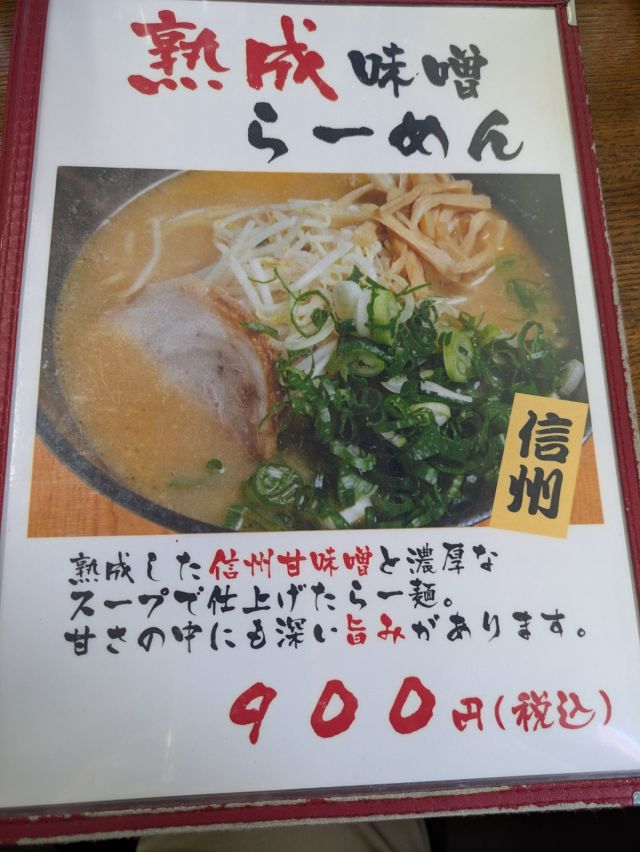 熟成味噌
らーめん
信州
熟成した信州甘味噌と濃厚な
スープで仕上げたらー麺。
甘さの中にも深い旨みがあります。
900円(税込)